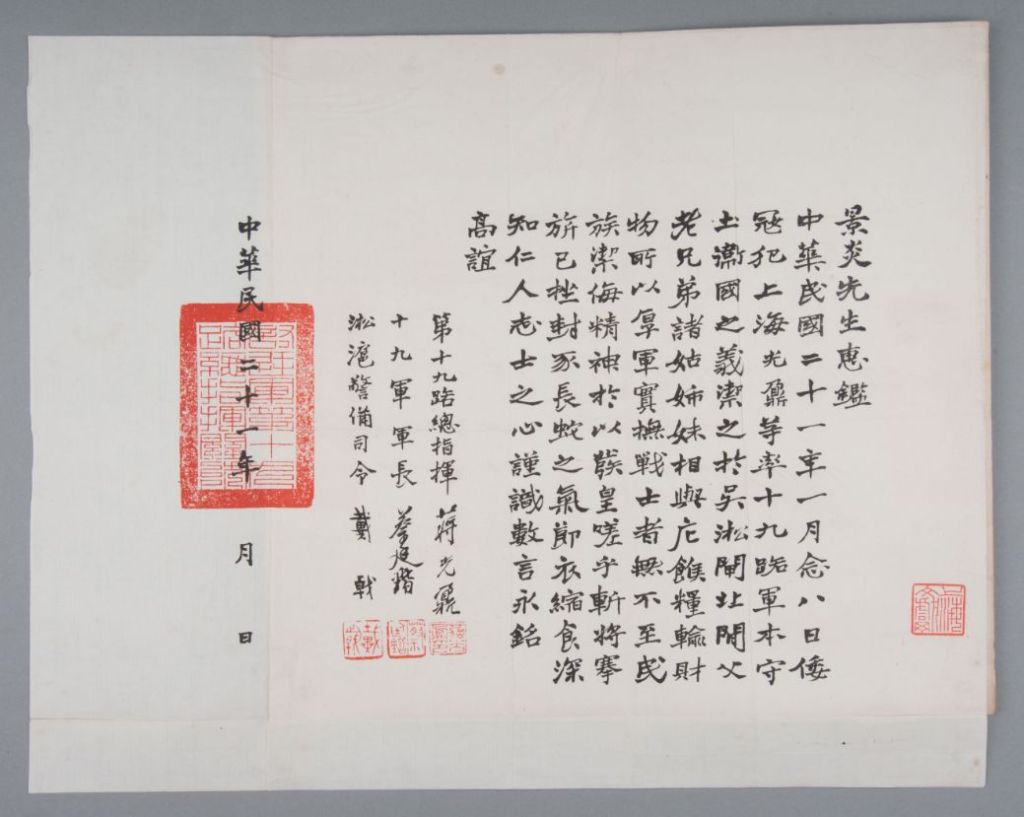 景炎先生惠鑑
中華民國二十一年一月念八日倭
冦犯上海光鼐等率十九路軍本守
土衞國之義潔之於吳淞閘北閒父
老兄弟諸姑姊妹相與庀餱糧輸財
物所以厚軍實撫戰士者無不至民
族潔侮精神於以猋皇嗟乎斬將搴
旂已挫封豕長蛇之氣節衣縮食深
知仁人志士之心謹識數言永銘
高誼
第十九路總指揮 蔣光鼐
十九軍軍長 蔡廷鍇
淞滬警備司令 戴戟
中華民國二十一年 月 日